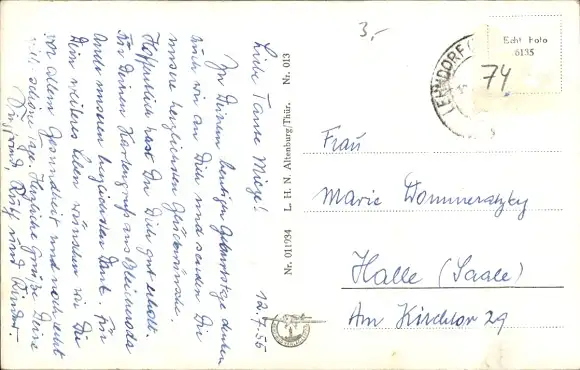 12.7.56
Liebe Tante Mieze!
Zu Deinem heutigen Geburtstage denken
auch wir an Dich und senden Dir
unsere herzlichsten Glückwünsche.
Hoffentlich hast Du Dich gut erholt.
Für Deinen Kartengruß aus Bleicherode
auch unseren herzlichsten Dank. Für
Dein weiteres Leben wünschen wir Dir
vor allem Gesundheit und noch recht
schöne Tage. Herzliche Grüße Deine
Ruth und Kinder.
Nr. 011934 L. H. N. Altenburg/Thür. Nr. 013
3,-
Echt Foto
6135
74
LEHNDORF
Frau
Marie Dommeratzky
Halle (Saale)
Am Kirchtor 29